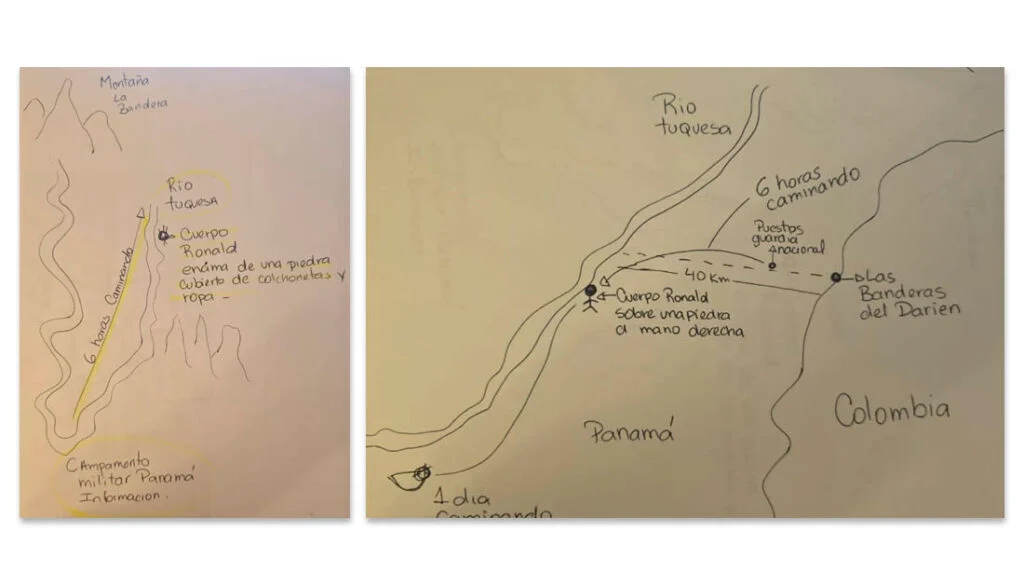 Montaña
La
Bandera
Rio
tuquesa
Cuerpo
Ronald
encima de una piedra
cubierto de colchonetas y
ropa -
6 horas Caminando
CAmpamento
militar Panamá
Informacion.
Rio
tuquesa
6 horas
caminando
Puestos
guardia
nacional
40 Km
Las
Banderas
del Darien
Cuerpo Ronald
sobre una piedra
a mano derecha
Colombia
Panamá
1 dia
Caminando